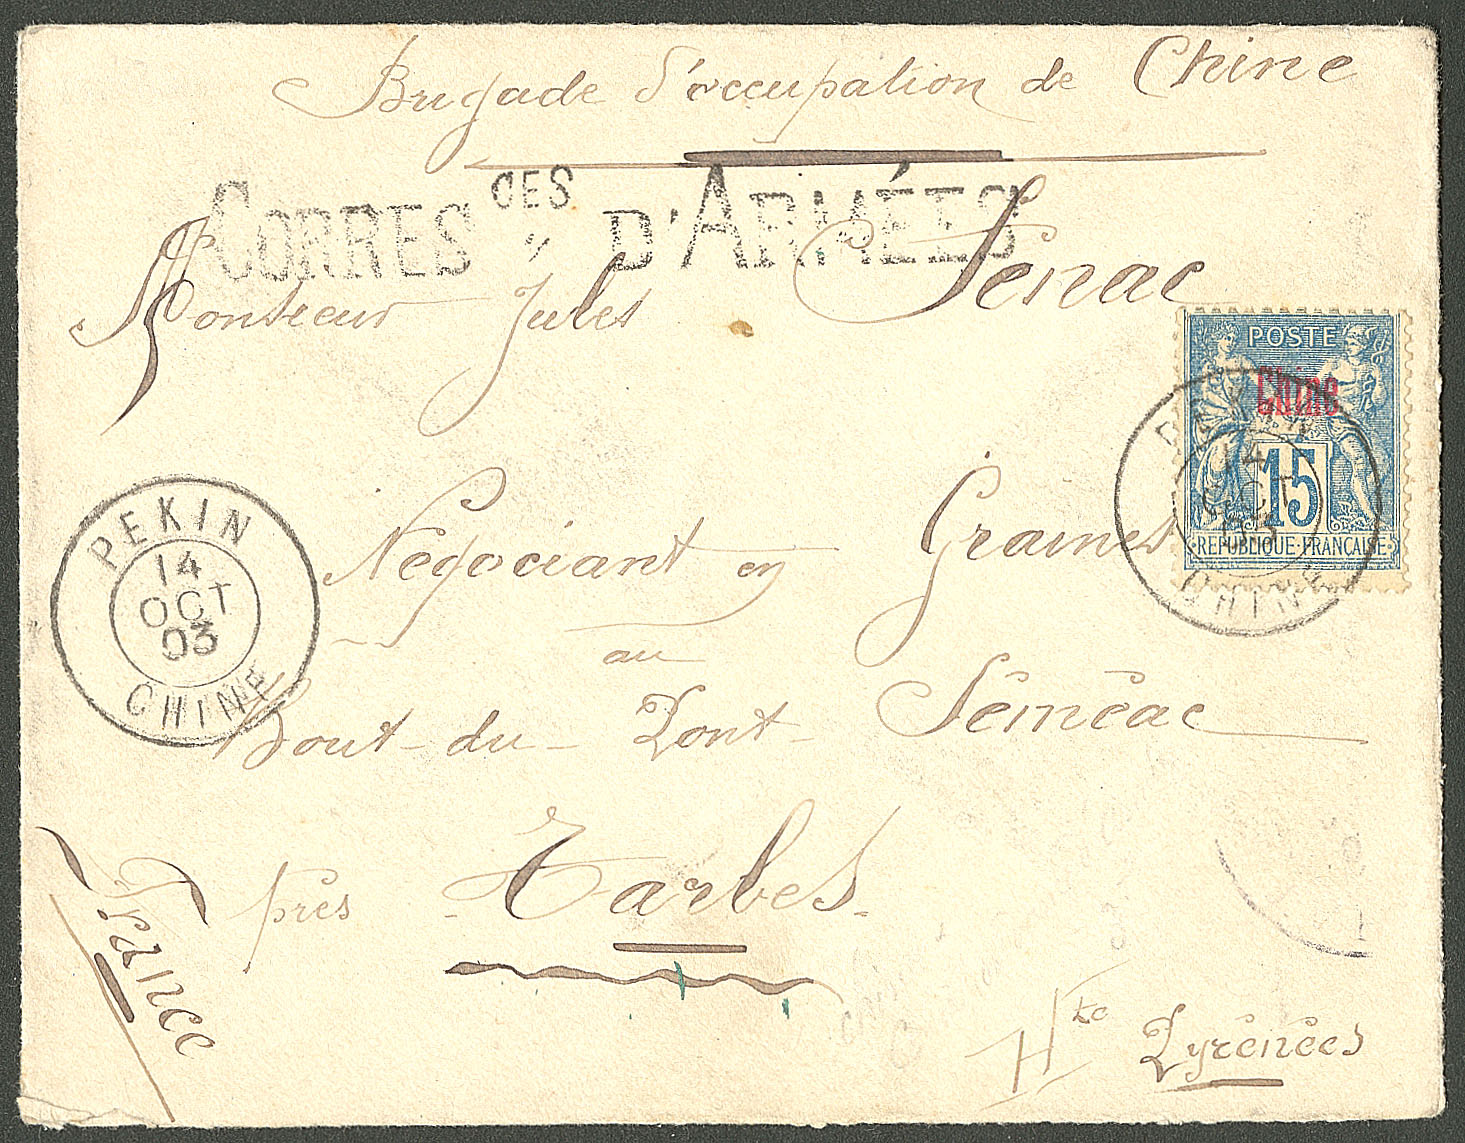 Brigade d'occupation de Chine
CORRES CES D'ARMÉES
Monsieur Jules Senac
POSTE
Chine
15
REPUBLIQUE FRANCAISE
PEKIN
14
OCT
03
CHINE
PEKIN
14
OCT
03
CHINE
Négociant en Graines
au
Bout-du-Pont Séméac
près Tarbes
France
Hte Pyrénées